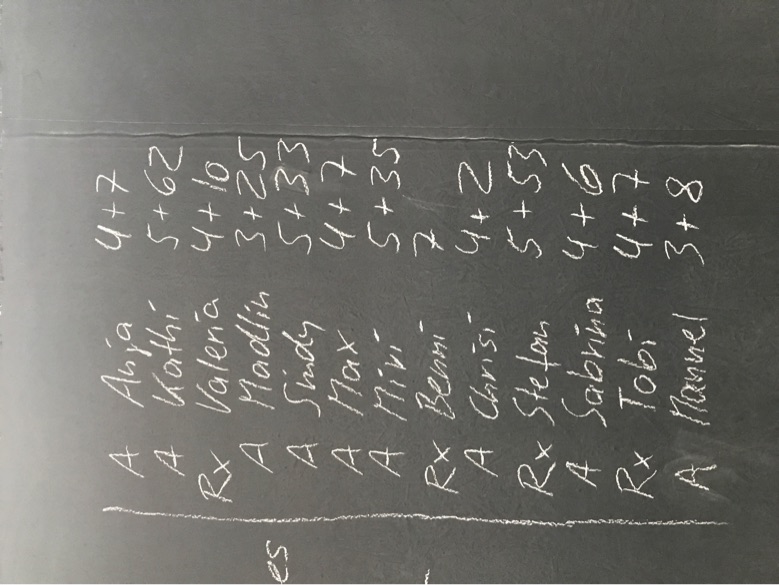 A Anja 4+7
A Kathi 5+62
Rx Valeria 4+10
A Madlin 3+25
A Sindy 5+33
A Max 4+7
A Miri 5+35
Rx Benni 7
A Chrisi 4+2
Rx Stefan 5+53
A Sabrina 4+6
Rx Tobi 4+7
A Manuel 3+8
es